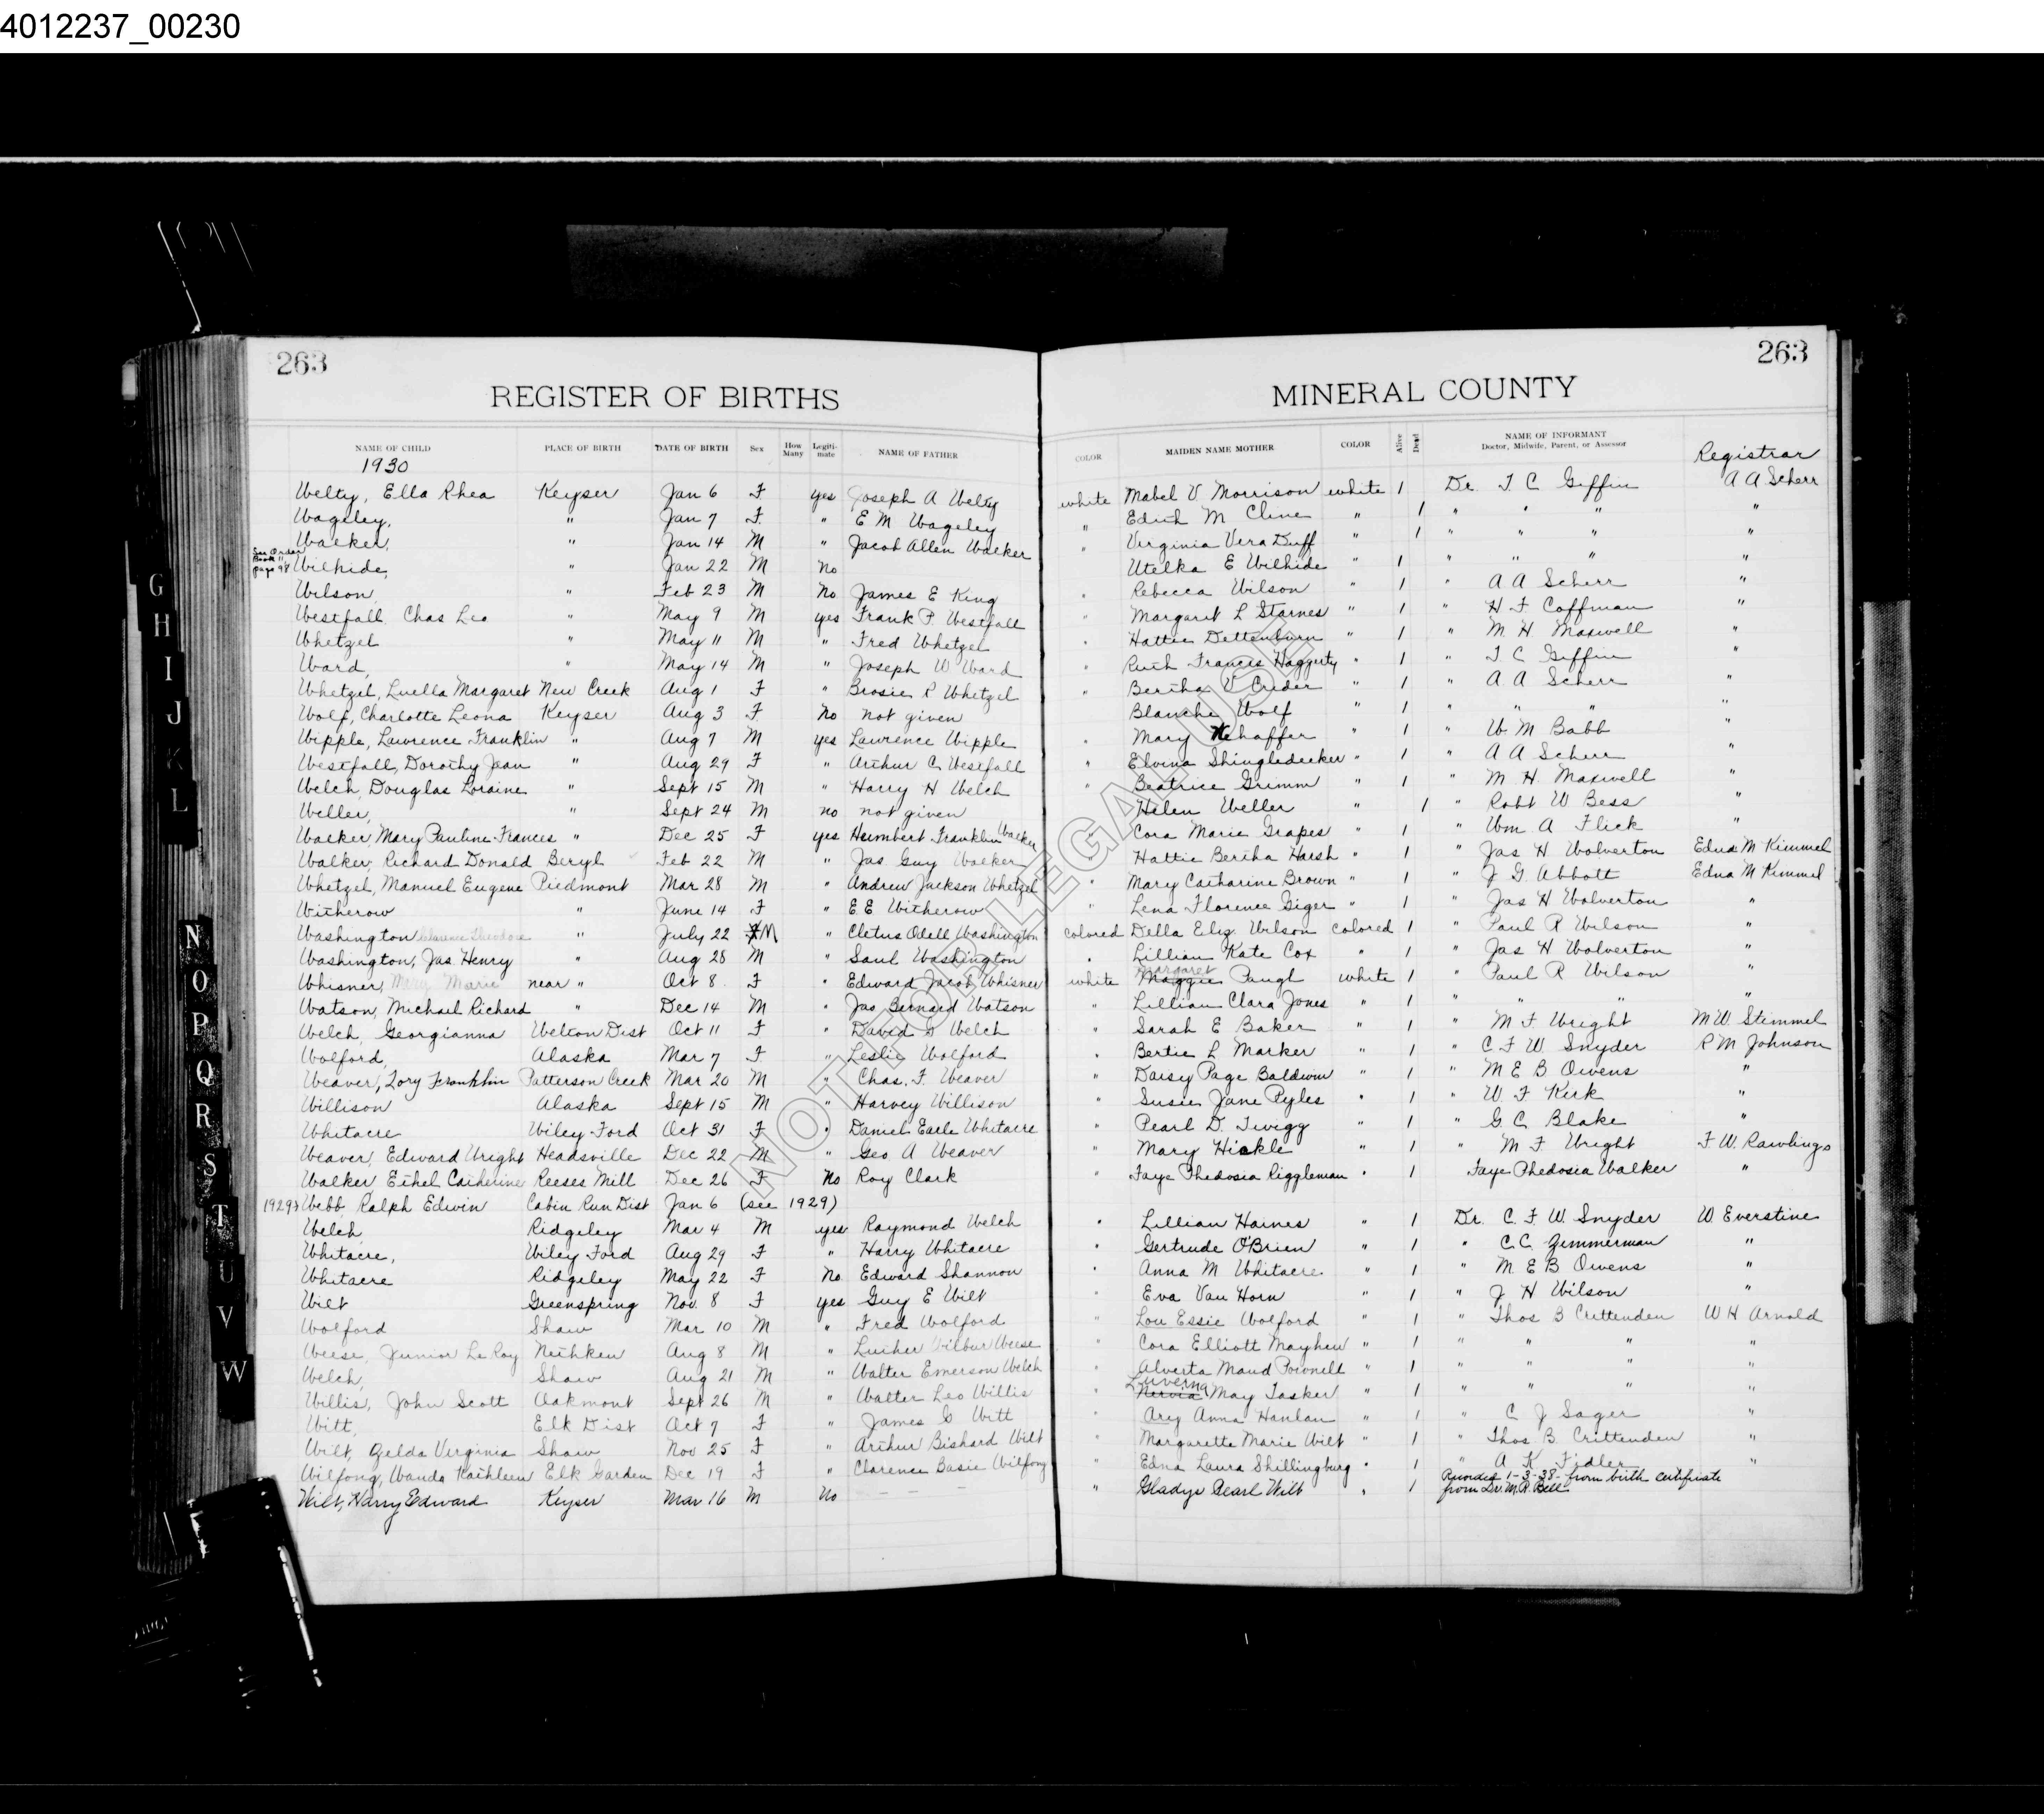 4012237_00230
263 263
REGISTER OF BIRTHS MINERAL COUNTY
NAME OF CHILD PLACE OF BIRTH DATE OF BIRTH Sex How Many Legiti-mate NAME OF FATHER COLOR MAIDEN NAME MOTHER COLOR Alive Dead NAME OF INFORMANT Doctor, Midwife, Parent, or Assessor Registrar
1930
Welty, Ella Rhea Keyser Jan 6 F yes Joseph A Welty white Mabel V Morrison white 1 Dr. T. C. Giffin A A Scherr
Wageley, " Jan 7 F. " E M Wageley " Edith M Cline " 1 " " " "
Walker, " Jan 14 M " Jacob Allen Walker " Virginia Vera Duff " 1 " " " "
See Order Book 11 page 98 Wilhide, " Jan 22 M No Utelka E Wilhide " 1 " " " "
Wilson, " Feb 23 M No James E King " Rebecca Wilson " 1 " A A Scherr "
Westfall, Chas Leo " May 9 M yes Frank P. Westfall " Margaret L Starnes " 1 " H F Coffman "
Whetzel " May 11 M " Fred Whetzel " Hattie Dettenburn " 1 " M. H. Maxwell "
Ward, " May 14 M " Joseph W Ward " Ruth Frances Haggerty " 1 " T. C. Giffin "
Whetzel, Luella Margaret New Creek Aug 1 F " Brosie R Whetzel " Bertha V Crider " 1 " A. A Scherr "
Wolf, Charlotte Leona Keyser Aug 3 F No not given Blanche Wolf " 1 " " " "
Wipple, Lawrence Franklin " Aug 7 M yes Lawrence Wipple " Mary " 1 " W. M Babb "
Westfall, Dorothy Jean " Aug 29 F " Arthur C. Westfall " Elvina Shingledecker " 1 " A A Scherr "
Welch, Douglas Loraine " Sept 15 M " Harry H Welch " Beatrice Grimm " 1 " M H Maxwell "
Weller, " Sept 24 M no not given Helen Weller " 1 " Robt W Bess "
Walker, Mary Pauline Frances " Dec 25 F yes Humbert Franklin Walker " Cora Marie Grapes " 1 " Wm A Flick "
Walker, Richard Donald Beryl Feb 22 M " Jas Guy Walker " Hattie Bertha Harsh " 1 " Jas H Wolverton Edna M Kimmel
Whetzel, Manuel Eugene Piedmont Mar 28 M " Andrew Jackson Whetzel " Mary Catharine Brown " 1 " J G. Abbott Edna M Kimmel
Witherow " June 14 F " E. E Witherow " Lena Florence Giger " 1 " Jas H Wolverton "
Washington Clarence Theodore " July 22 M " Cletus Odell Washington colored Della Eliz. Wilson colored 1 " Paul R Wilson "
Washington, Jas. Henry " Aug 28 M " Saul Washington " Lillian Kate Cox " 1 " Jas H Wolverton "
Whisner, Mary Marie near " Oct 8 F " Edward Jacob Whisner white Maggie Margaret Paugh white 1 " Paul R Wilson "
Watson, Michael Richard " Dec 14 M " Jas Bernard Watson " Lillian Clara Jones " 1 " " " "
Welch, Georgianna Welton Dist Oct 11 F " David Welch " Sarah E Baker " 1 " M F. Wright M W. Stimmel
Wolford, Alaska Mar 7 F " Leslie Wolford " Bertie L Marker " 1 " C. F. W. Snyder R M Johnson
Weaver, Lory Franklin Patterson Creek Mar 20 M " Chas. F. Weaver " Daisy Page Baldwin " 1 " M E B Owens "
Willison Alaska Sept 15 M " Harvey Willison " Susie Jane Pyles " 1 " W. F Kirk "
Whitacre Wiley Ford Oct 31 F " Daniel Earle Whitacre " Pearl D. Twigg " 1 " G C Blake "
Weaver, Edward Wright Headsville Dec 22 M " Geo A Weaver " Mary Hickle " 1 " M F. Wright F. W. Rawlings
Walker Ethel Catherine Reeses Mill Dec 26 F No Roy Clark " Faye Thedosia Riggleman " 1 Faye Thedosia Walker "
1929 Webb, Ralph Edwin Cabin Run Dist Jan 6 (see 1929)
Welch, Ridgeley Mar 4 M yes Raymond Welch " Lillian Haines " 1 Dr. C. F. W. Snyder W. Everstine
Whitacre, Wiley Ford Aug 29 F " Harry Whitacre " Gertrude O'Brien " 1 " C. C. Zimmerman "
Whitacre Ridgeley May 22 F No Edward Shannon " Anna M Whitacre " 1 " M. E B Owens "
Wilt Greenspring Nov. 8 F yes Guy E Wilt " Eva Van Horn " 1 " J H Wilson "
Wolford Shaw Mar 10 M " Fred Wolford " Lou Essie Wolford " 1 " Thos B Crittenden W H Arnold
Weese, Junior Le Roy Nethken Aug 8 M " Luther Wilbur Weese " Cora Elliott Mayhew " 1 " " " "
Welch, Shaw Aug 21 M " Walter Emerson Welch " Alverta Maud Pownell " 1 " " " "
Willis, John Scott Oakmont Sept 26 M " Walter Leo Willis " Luverna May Tasker " 1 " " " "
Witt, Elk Dist Oct 7 F " James C Witt " Arey Anna Hanlan " 1 " C J Sager "
Wilt, Zelda Virginia Shaw Nov 25 F " Arthur Bishard Wilt " Margarette Marie Wilt " 1 " Thos B. Crittenden "
Wilfong, Wanda Kathleen Elk Garden Dec 19 F " Clarence Basie Wilfong " Edna Laura Shillingburg " 1 " A K Fidler "
Wilt, Harry Edward Keyser Mar 16 M No - - - " Gladys Pearl Wilt " 1 Recorded 1-3-38 from birth certificate from Dr. M. R. Bell
NOT FOR LEGAL USE
G
H
I
J
K
L
N
O
P
Q
R
S
T
U
V
W